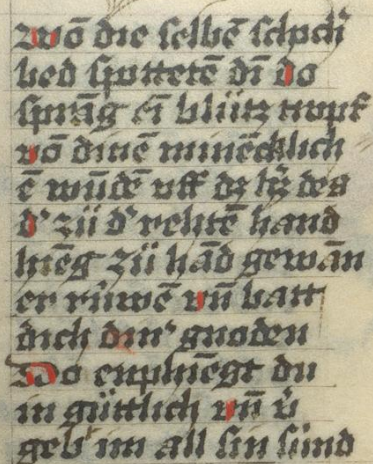 Wō die selbē schch̄
bed spottetē dī do
sprāg ei blůtz tropf
vō dinē minēcklich
ē wūdē vff dz h̄z des
d' zů d' rehtē hand
hiēg zů hād gewān
er rúwē vn̄ batt
dich din' gnoden
Do enphiēgt du
in gůttlich vn̄ v̄
geb' im all sin súnd